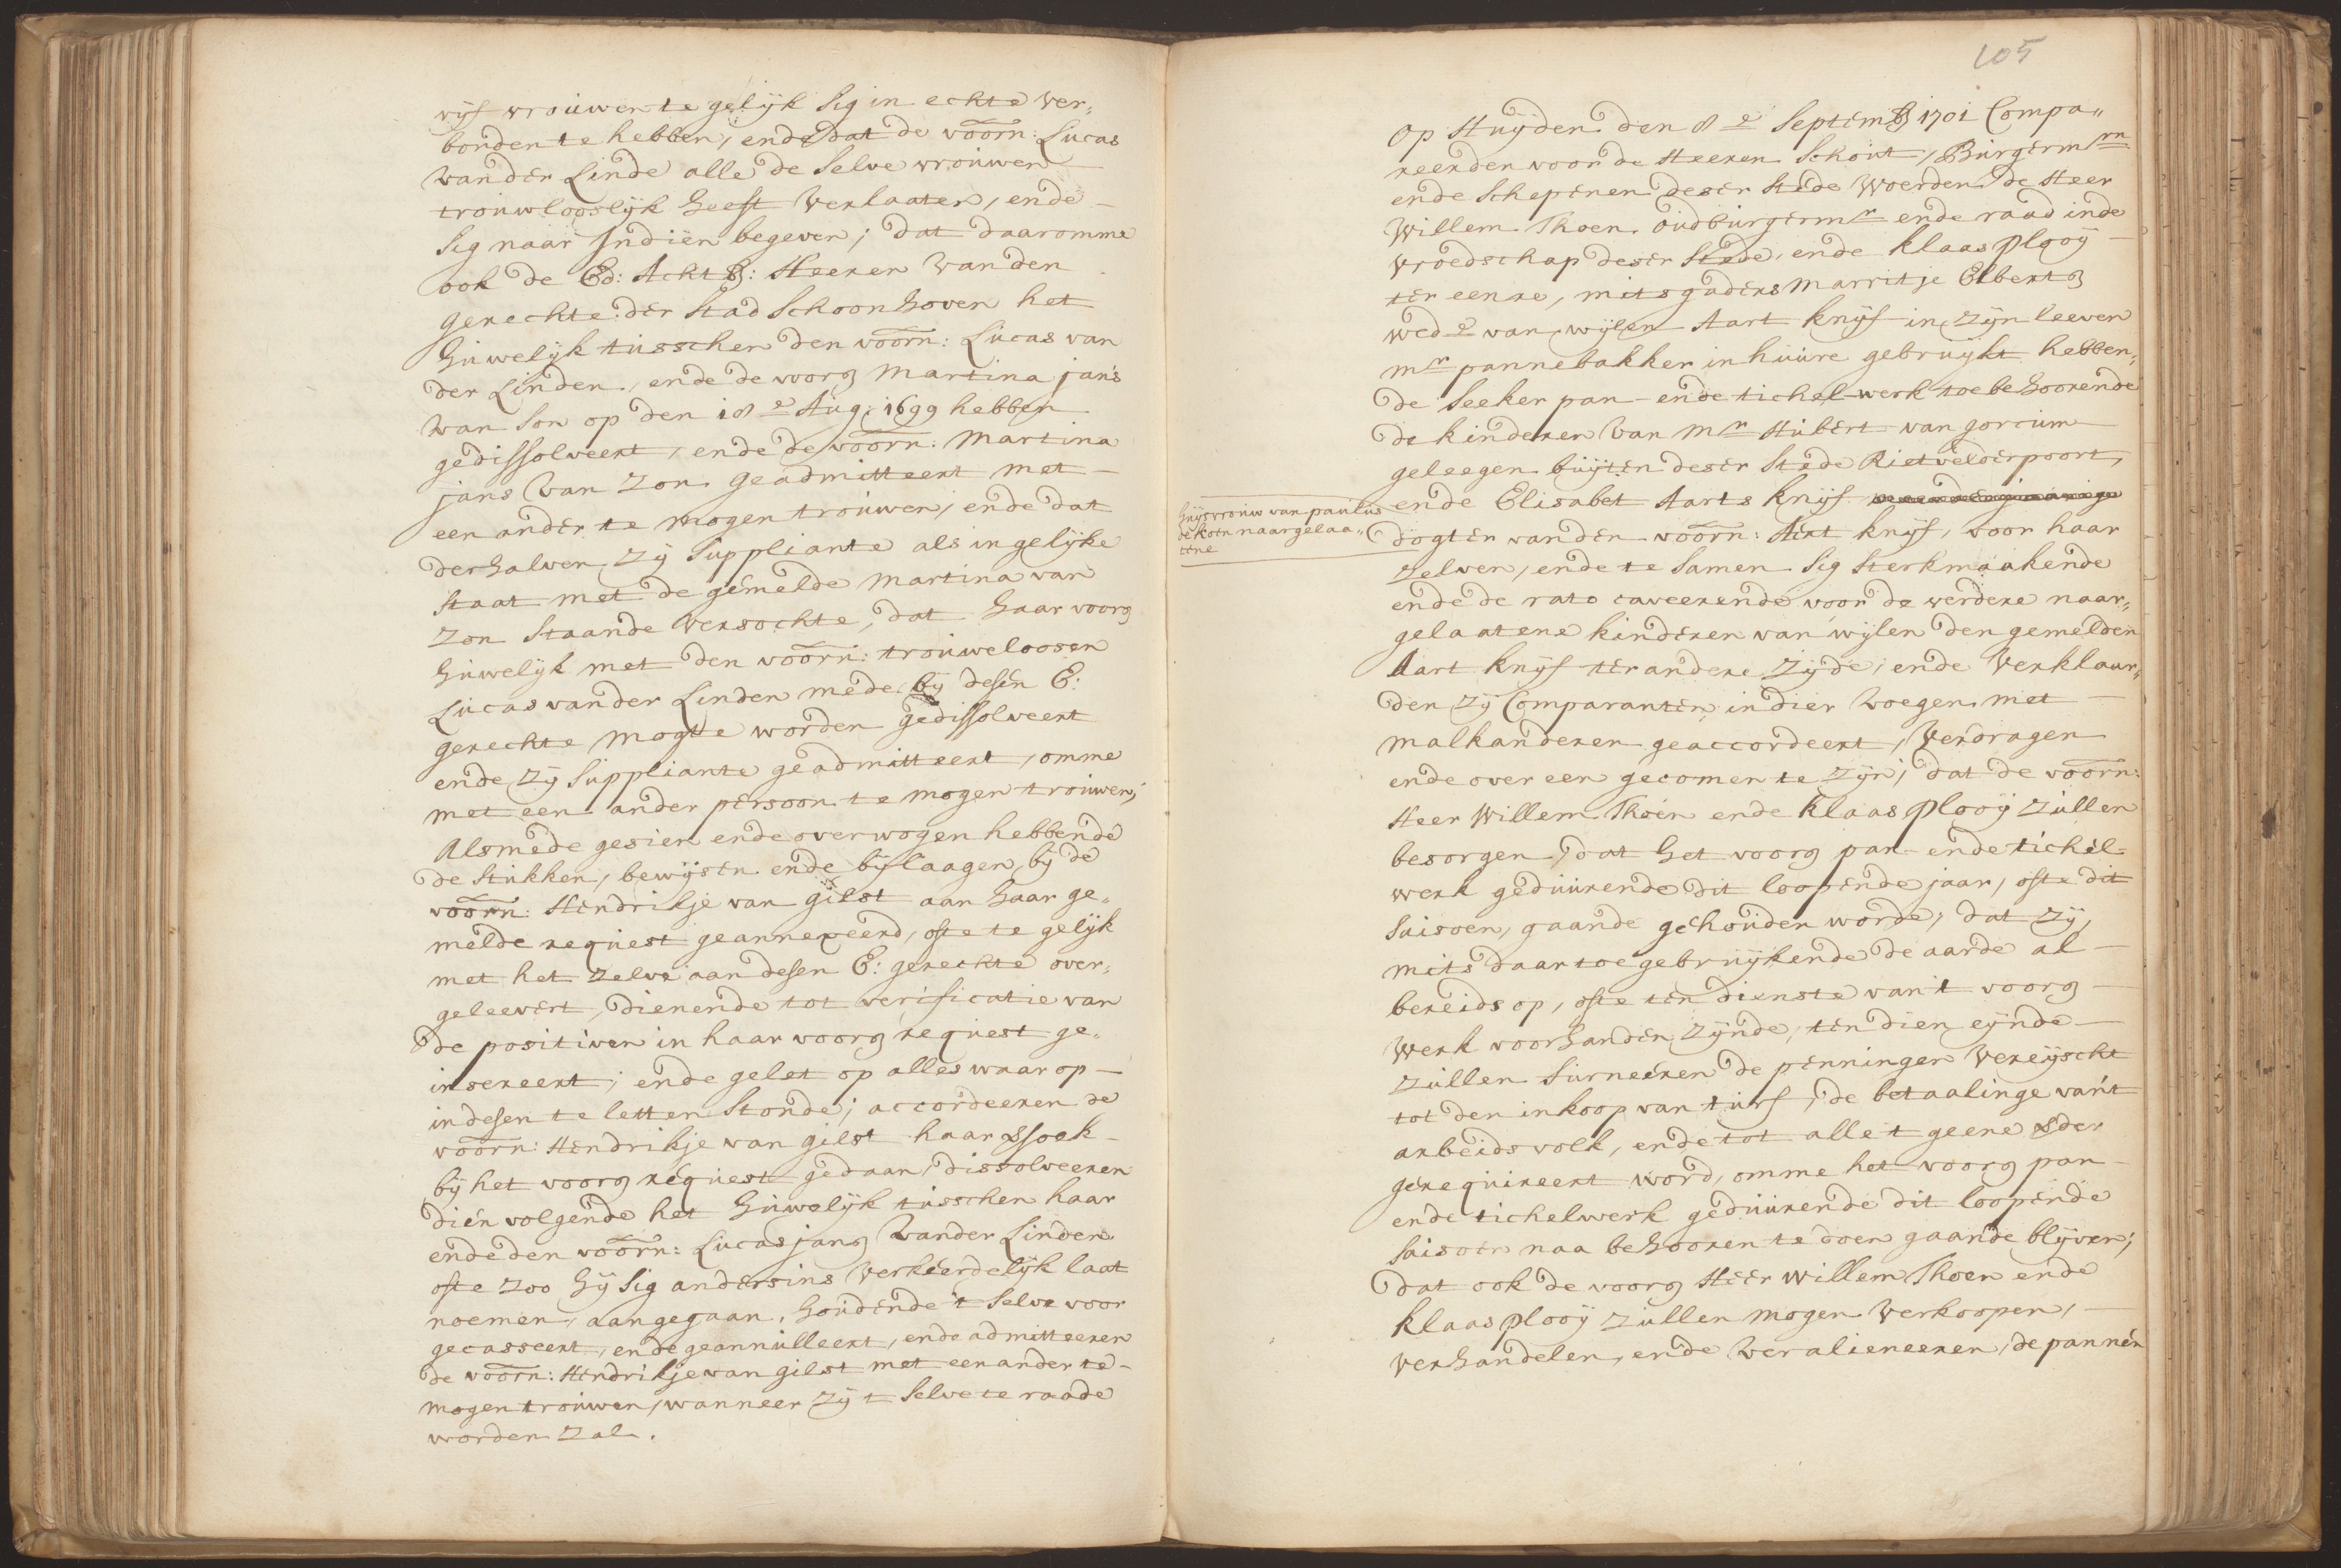 vijf vrouwen te gelijk sig in echte ver„
bonden te hebben, ende dat de voorn: Lucas
van der Linde alle de selve vrouwen
trouwlooslijk heeft verlaaten, ende
sig naar Indiën begeven; dat daaromme
ook de Ed: Achtb: Heeren van den
gerechte der Stad Schoonhoven het
huwelijk tusschen den voorn: Lucas van
der Linden, ende de voorg Martina jans
van Son op den 18e Aug: 1699 hebben
gedissolveert, ende de voorn: Martina
jans van Zon geadmitteert met
een ander te mogen trouwen, ende dat
derhalven zij Suppliante als in gelijke
staat met de gemelde Martina van
Zon staande versochte, dat haar voorg
huwelijk met den voorn: trouweloosen
Lucas van der Linden mede bij desen E:
gerechte mogte worden gedissolveert
ende zij Suppliante geadmitteert, omme
met een ander persoon te mogen trouwen;
Alsmede gesien ende overwogen hebbende
de stukken, bewijsen ende bijlaagen bij de
voorn: Hendrikje van gilst aan haar ge„
melde request geannexeerd, ofte te gelijk
met het zelve aan desen E: gerechte over„
geleevert, dienende tot verificatie van
de positiven in haar voorg request ge„
insereert; ende gelet op alles waar op
in desen te letten stonde; accordeeren de
voorn: Hendrikje van gilst haar versoek
bij het voorg request gedaan, dissolveeren
dien volgende het huwelijk tusschen haar
ende den voorn: Lucas jansz van der Linden
ofte zoo hij sig andersins verkeerdelijk laat
noemen, aangegaan, houdende 't selve voor
gecasseert, ende geannulleert, ende admitteeren
de voorn: Hendrikje van gilst met een ander te
mogen trouwen, wanneer zij 't selve te raade
worden zal.
105
Op Huijden den 8e Septemb 1701 Compa„
reerden voor de Heeren Schout, Burgermrn
ende Schepenen deser Stede Woerden de Heer
Willem Thoen oudburgermr ende raad in de
vroedschap deser Stede, ende Klaas Plooij
ter eenre, mitsgaders Marritje Elberts
wede van wijlen Aart Knijf in zijn leeven
mr pannebakker in huure gebruijkt hebben„
de seeker pan- ende tichel-werk toebehoorende
de kinderen van mr Hubert van gorcum
geleegen buijten deser Stede Rietvelderpoort,
ende Elisabet Aarts Knijf
huijsvrouw van paulus
de koen naargelaa„
tene
dogter van den voorn: Aert Knijf, voor haar
zelven, ende te samen sig sterkmaakende
ende de rato caveerende voor de verdere naar„
gelaatene kinderen van wijlen den gemelden
Aart Knijf ter andere zijde, ende verklaar„
den zij Comparanten in dier voegen met
malkanderen geaccordeert, verdragen
ende over een gecomen te zijn, dat de voorn:
Heer Willem Thoen ende Klaas Plooij zullen
besorgen, dat het voorg pan- ende tichel-
werk geduurende dit loopende jaar, ofte dit
saisoen, gaande gehouden worde, dat zij,
mits daar toe gebruijkende de aarde al
bereids op, ofte ten dienste van 't voorg
werk voorhanden zijnde, ten dien eijnde
zullen furneeren de penningen vereijscht
tot den inkoop van turf, de betaalinge van 't
arbeidsvolk, ende tot alle 't geene der
gerequireert word, omme het voorg pan
ende tichelwerk geduurende dit loopende
saisoen naa behooren te doen gaande blijven;
dat ook de voorg Heer Willem Thoen ende
Klaas Plooij zullen mogen verkoopen,
verhandelen, ende veralieneeren, de pannen